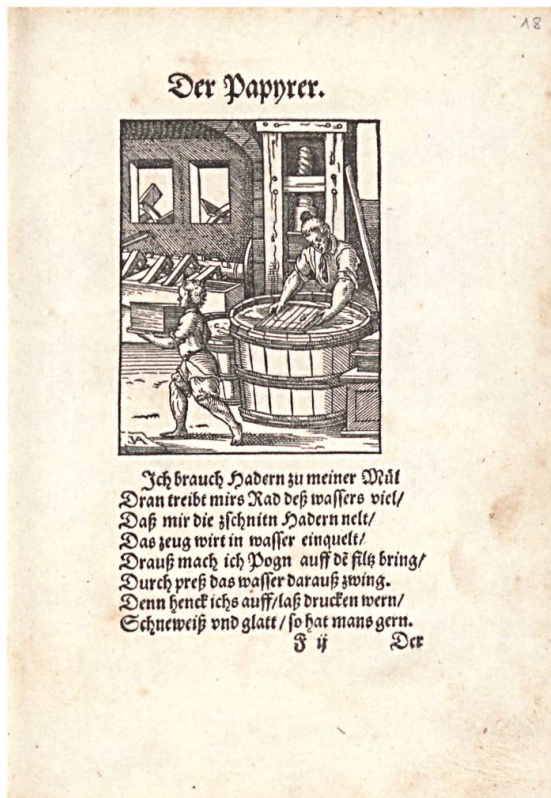 18
Der Papyrer.
VA
Jch brauch Hadern zu meiner Mül
Dran treibt mirs Rad deß wassers viel/
Daß mir die zschnitn Hadern nelt/
Das zeug wirt in wasser einquelt/
Drauß mach ich Pogn auff dẽ filtz bring/
Durch preß das wasser darauß zwing.
Denn henck ichs auff/laß drucken wern/
Schneweiß vnd glatt / so hat mans gern.
F ij Der